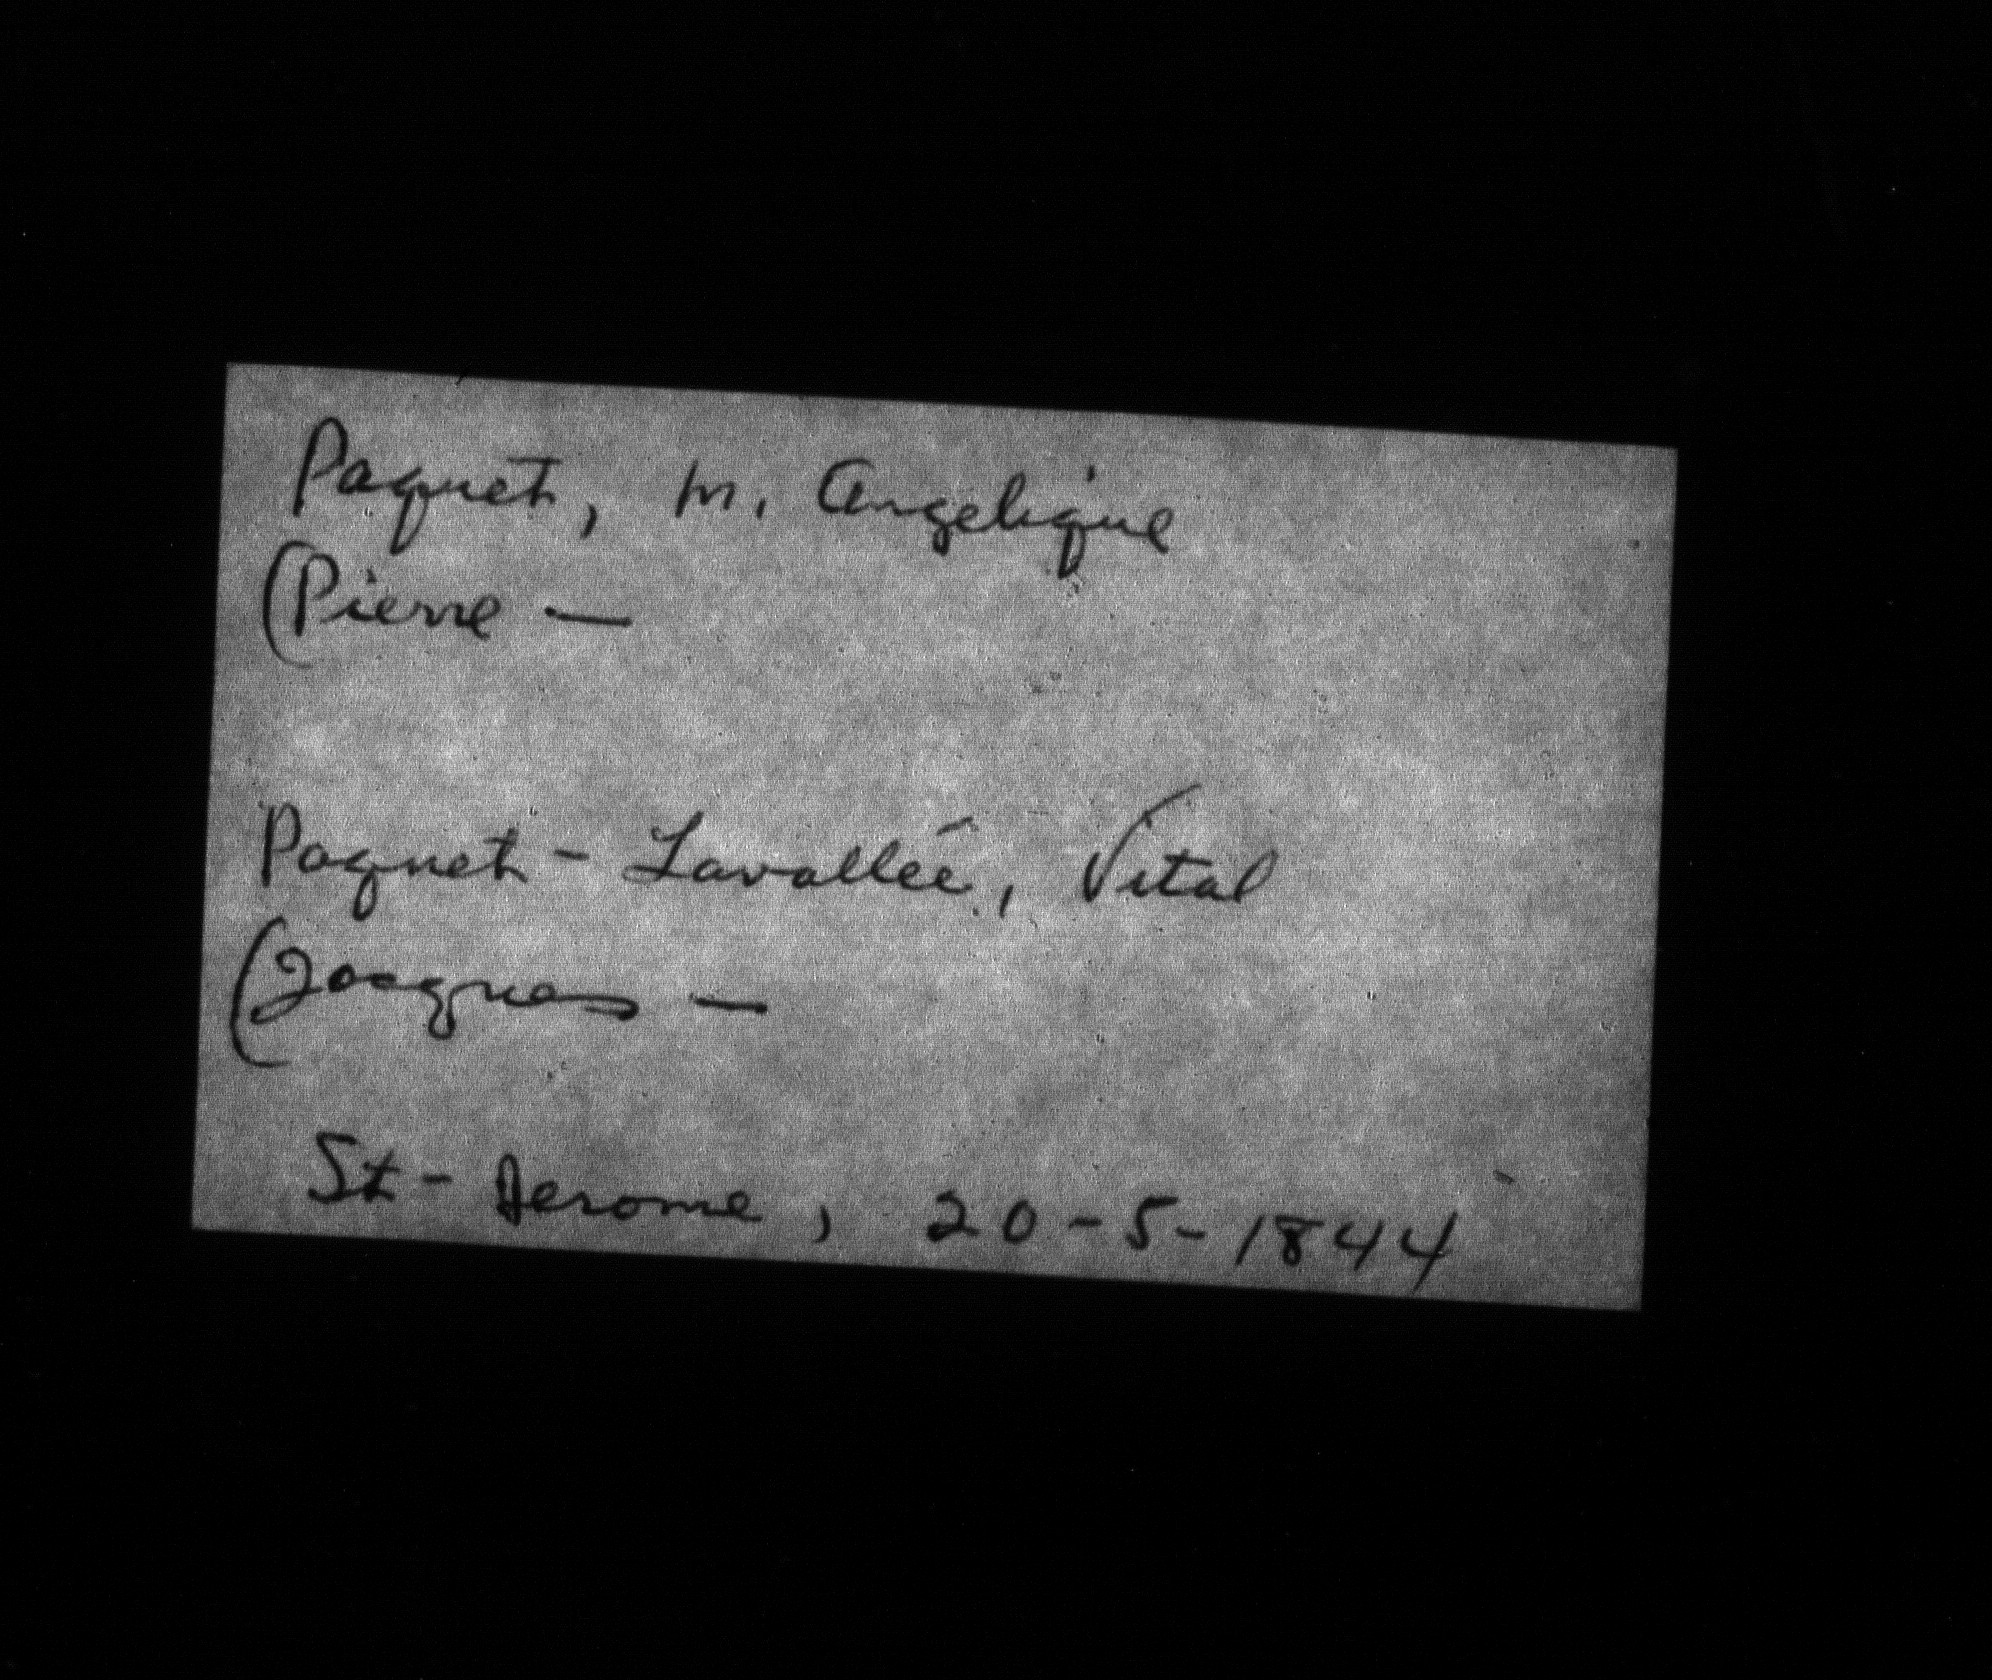 Paquet, M. Angelique
(Pierre —
Paquet - Lavallée, Vital
(Jacques —
St - Jerome, 20-5-1844